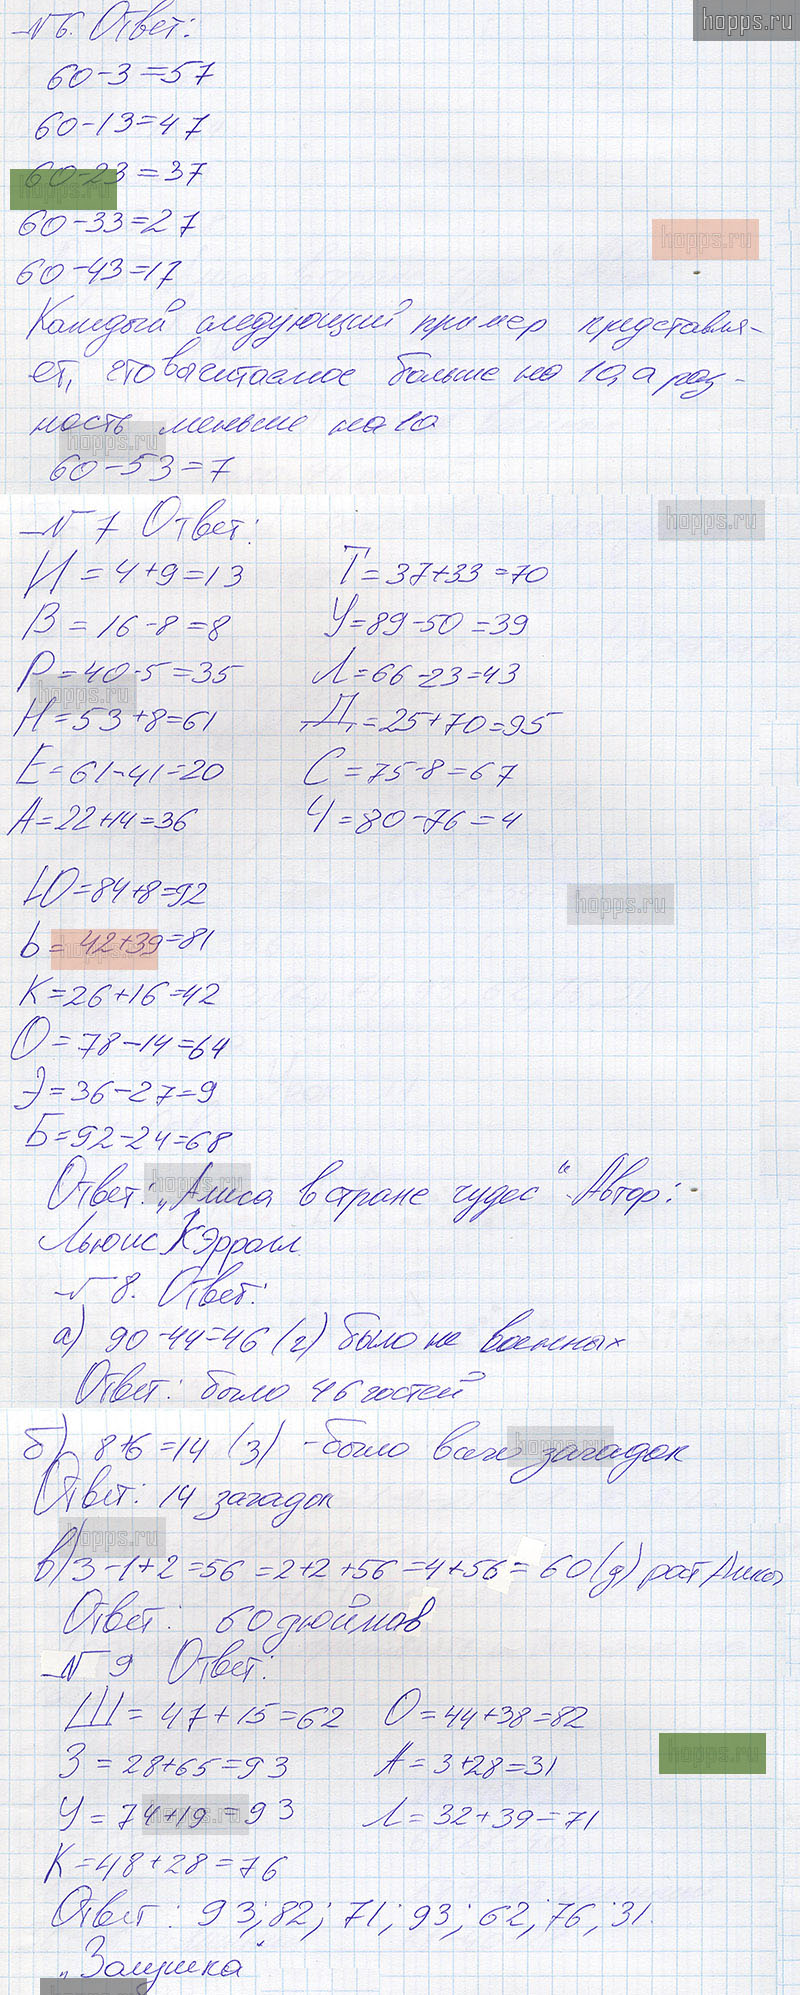 hopps.ru
№6. Ответ:
60-3=57
60-13=47
60-23=37
hopps.ru
60-33=27
hopps.ru
60-43=17
Каждый следующий пример представля-
ет, что вычитаемое больше на 10, а раз-
ность меньше на 10
hopps.ru
60-53=7
hopps.ru
№7 Ответ:
И=4+9=13 Т=37+33=70
В=16-8=8 У=89-50=39
Р=40-5=35 Л=66-23=43
hopps.ru
Н=53+8=61 Д=25+70=95
Е=61-41=20 С=75-8=67
А=22+14=36 Ч=80-76=4
Ю=84+8=92
hopps.ru
Ь=42+39=81
hopps.ru
К=26+16=42
О=78-14=64
Э=36-27=9
Б=92-24=68
hopps.ru
Ответ: „Алиса в стране чудес“ Автор:
Льюис Кэрролл
№8. Ответ:
а) 90-44=46 (г) было не военных
Ответ: было 46 гостей
б) 8+6=14 (з) - было всего загадок
hopps.ru
Ответ: 14 загадок
hopps.ru
в) 3-1+2=56=2+2+56=4+56=60(д) рост Алисы
Ответ: 60 дюймов
№9 Ответ:
Ш=47+15=62 О=44+38=82
З=28+65=93 А=3+28=31
hopps.ru
У=74+19=93 Л=32+39=71
hopps.ru
К=48+28=76
Ответ: 93; 82; 71; 93; 62; 76; 31.
„Золушка“